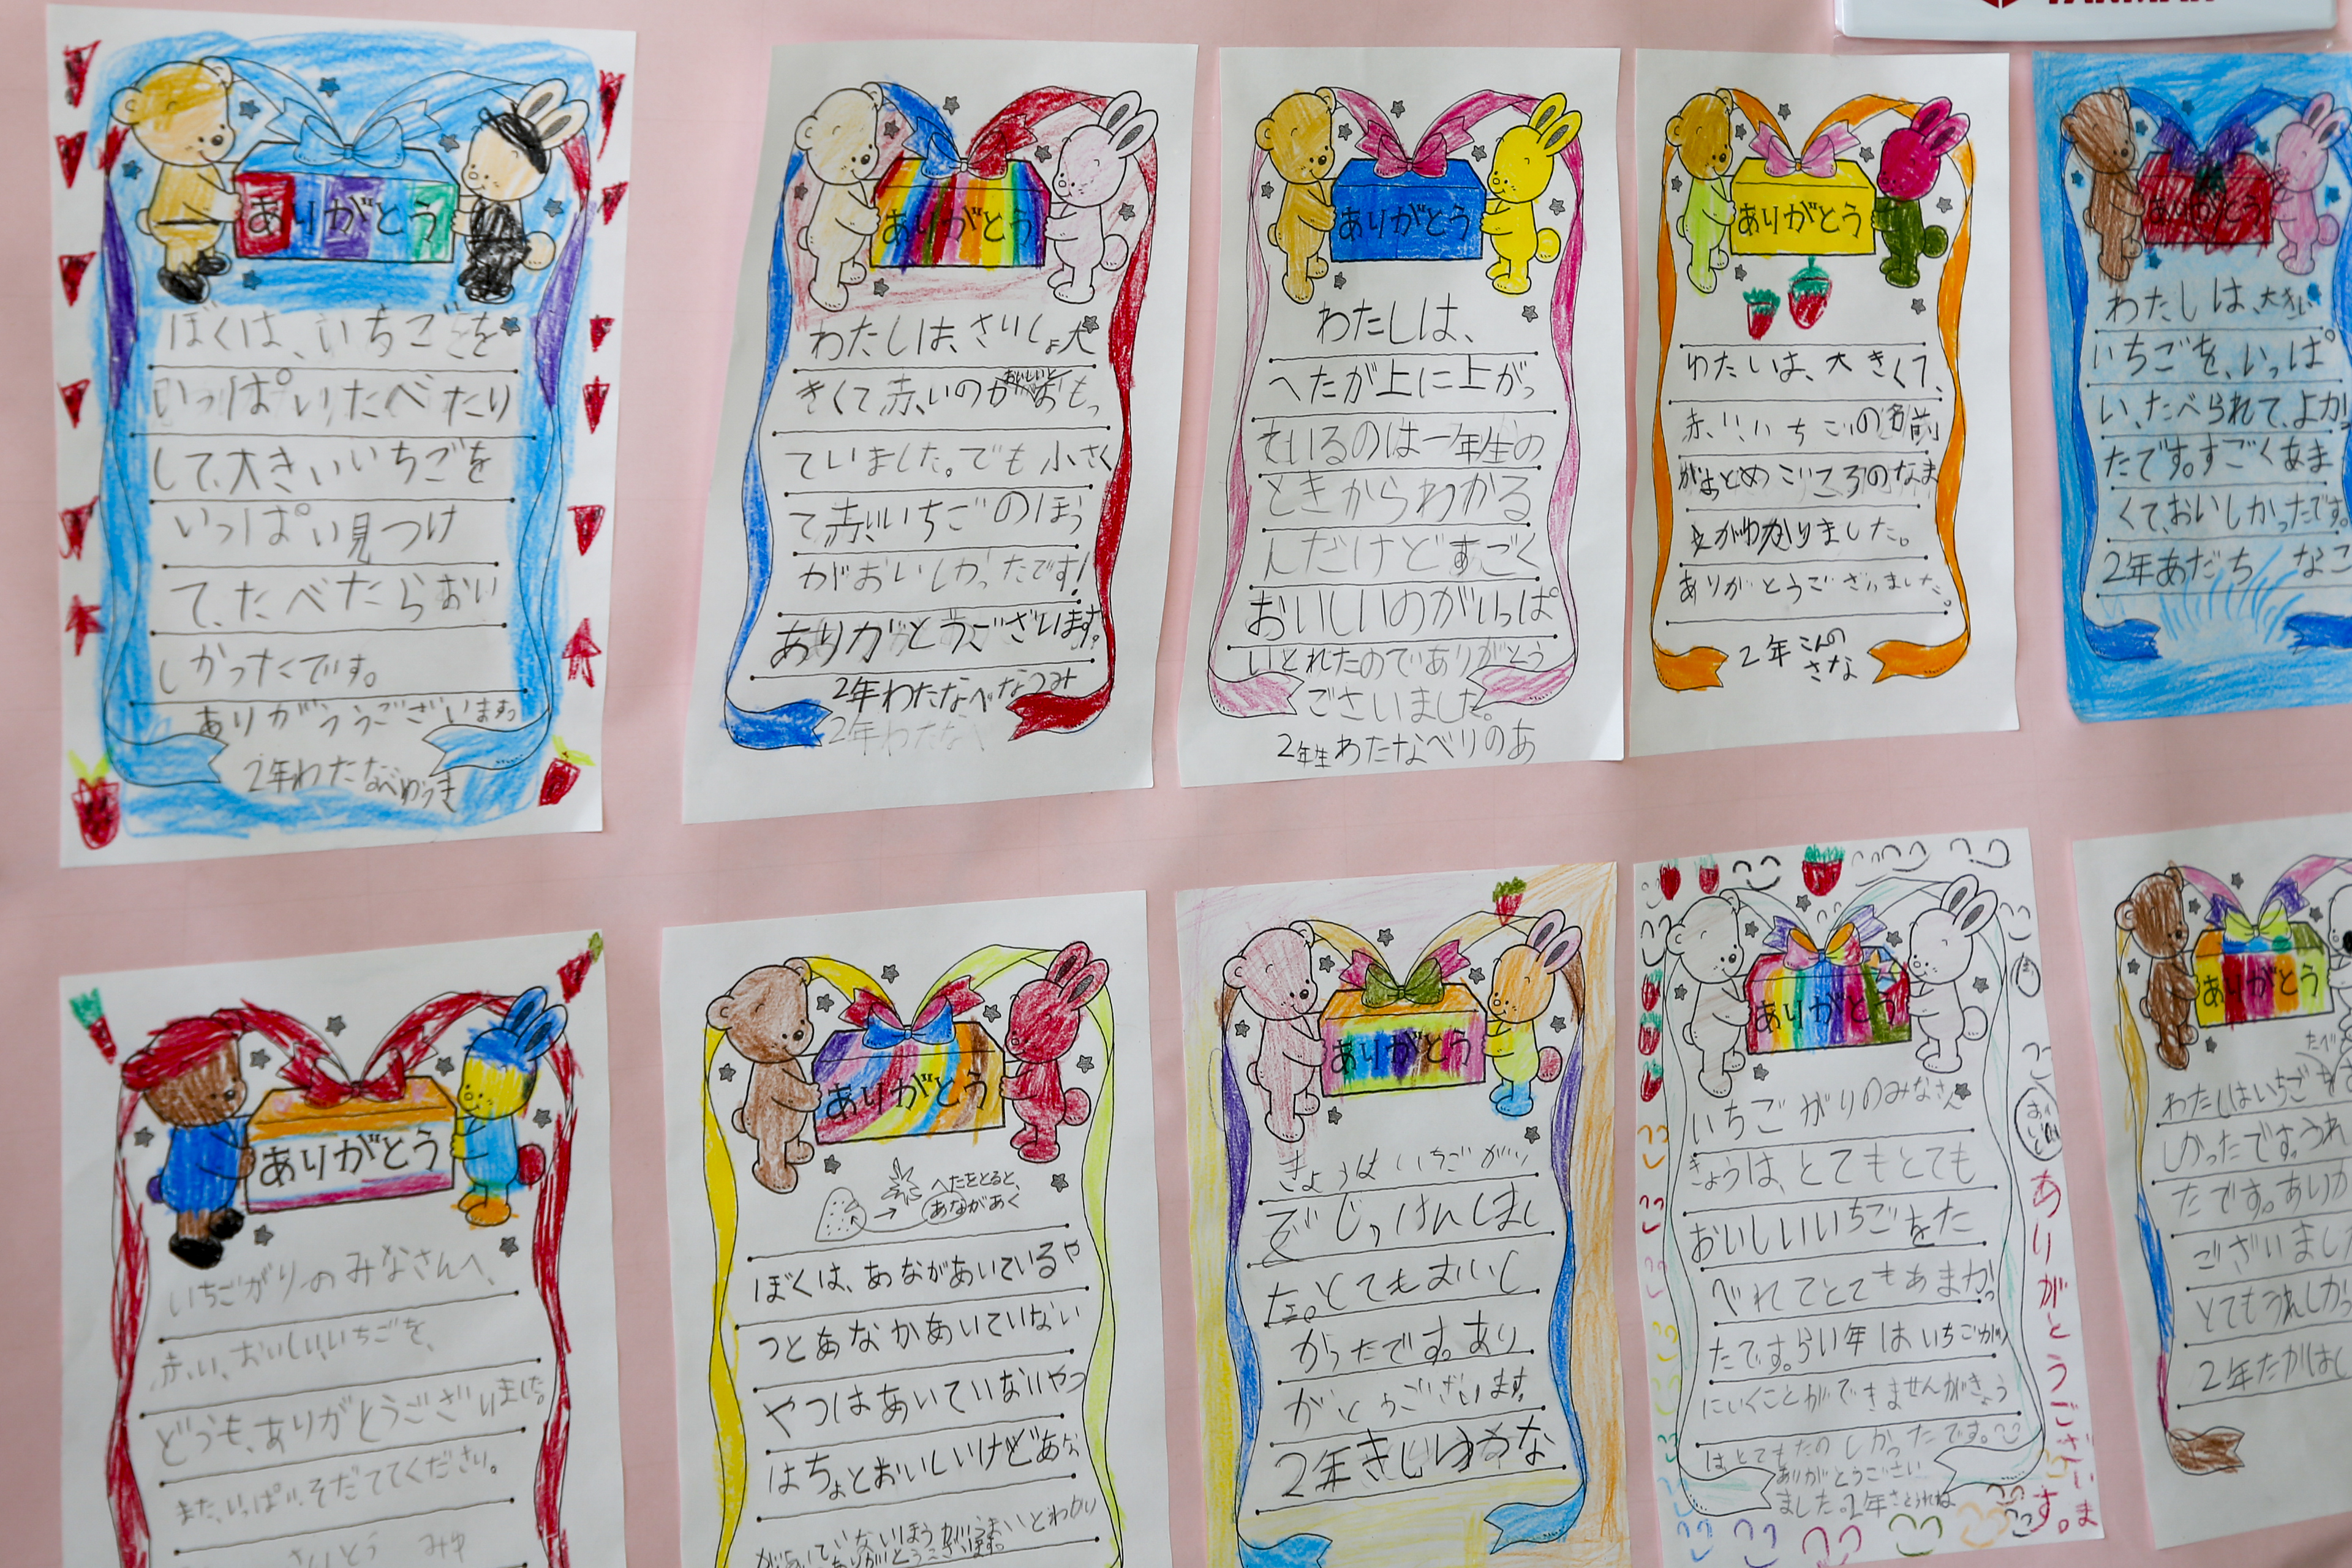 ありがとう
ぼくは、いちごを
いっぱいたべたり
して、大きいいちごを
いっぱい見つけ
て、たべたらおい
しかったです。
ありがううございますっ
2年わたなべゆうき
ありがとう
わたしは、さいしょ大
きくて赤いのがおいしいとおもっ
ていました。でも小さく
て赤いいちごのほう
がおいしかったです!
ありがとうございます。
2年わたなべなつみ
2年わたなべ
ありがとう
わたしは、
へたが上に上がっ
ているのは一年生の
ときからわかる
んだけどすごく
おいしいのがいっぱ
いとれたのでありがとう
ございました。
2年生わたなべりのあ
ありがとう
わたしは、大きくて、
赤い、いちごの名前
がおとめごころのなま
えがわかりました。
ありがとうございました。
2年こんの
さな
ありがとう
わたしは、大きい
いちごを、いっぱ
い、たべられて、よかっ
たです。すごくあま
くて、おいしかったです。
2年あだち なこ
ありがとう
いちごがりのみなさんへ、
赤い、おいしい、いちごを、
どうも、ありがとうございました。
また、いっぱい、そだててください。
さいとう みゆ
ありがとう
へたをとると、
あながあく
ぼくは、あながあいているや
つとあなかあいていない
やつはあいていないやつ
はちょとおいしいけどあな
があいていないほうがうまいとわかり
ありがとうございます。
ありがとう
きょうはいちごがり
でじっけんしまし
た。とてもおいし
かったです。あり
がとうございます。
2年きじまゆうな
ありがとう
いちごがりのみなさん
きょうは、とてもとても
おいしいいちごをた
べれてとてもあまかっ
たです。らい年はいちごがり
にいくことができませんがきょう
はとてもたのしかったです。
ありがとうござい
ました。2年さとうれね
おいしい
ありがとうございま
す。
ありがとう
たべ
わたしはいちごを
しかったです。うれ
たです。ありが
ございまし
とてもうれしかっ
2年たかはし